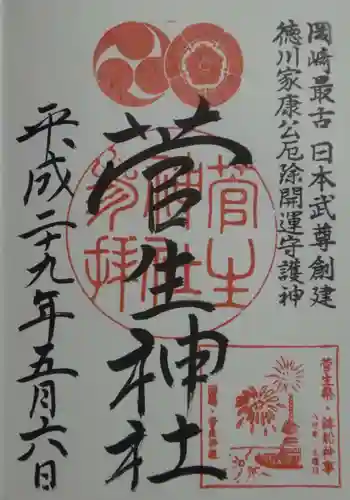 岡崎最古 日本武尊創建
徳川家康公厄除開運守護神
菅生神社
平成二十九年五月六日
菅生神社
参拝
菅生祭・鉾船神事